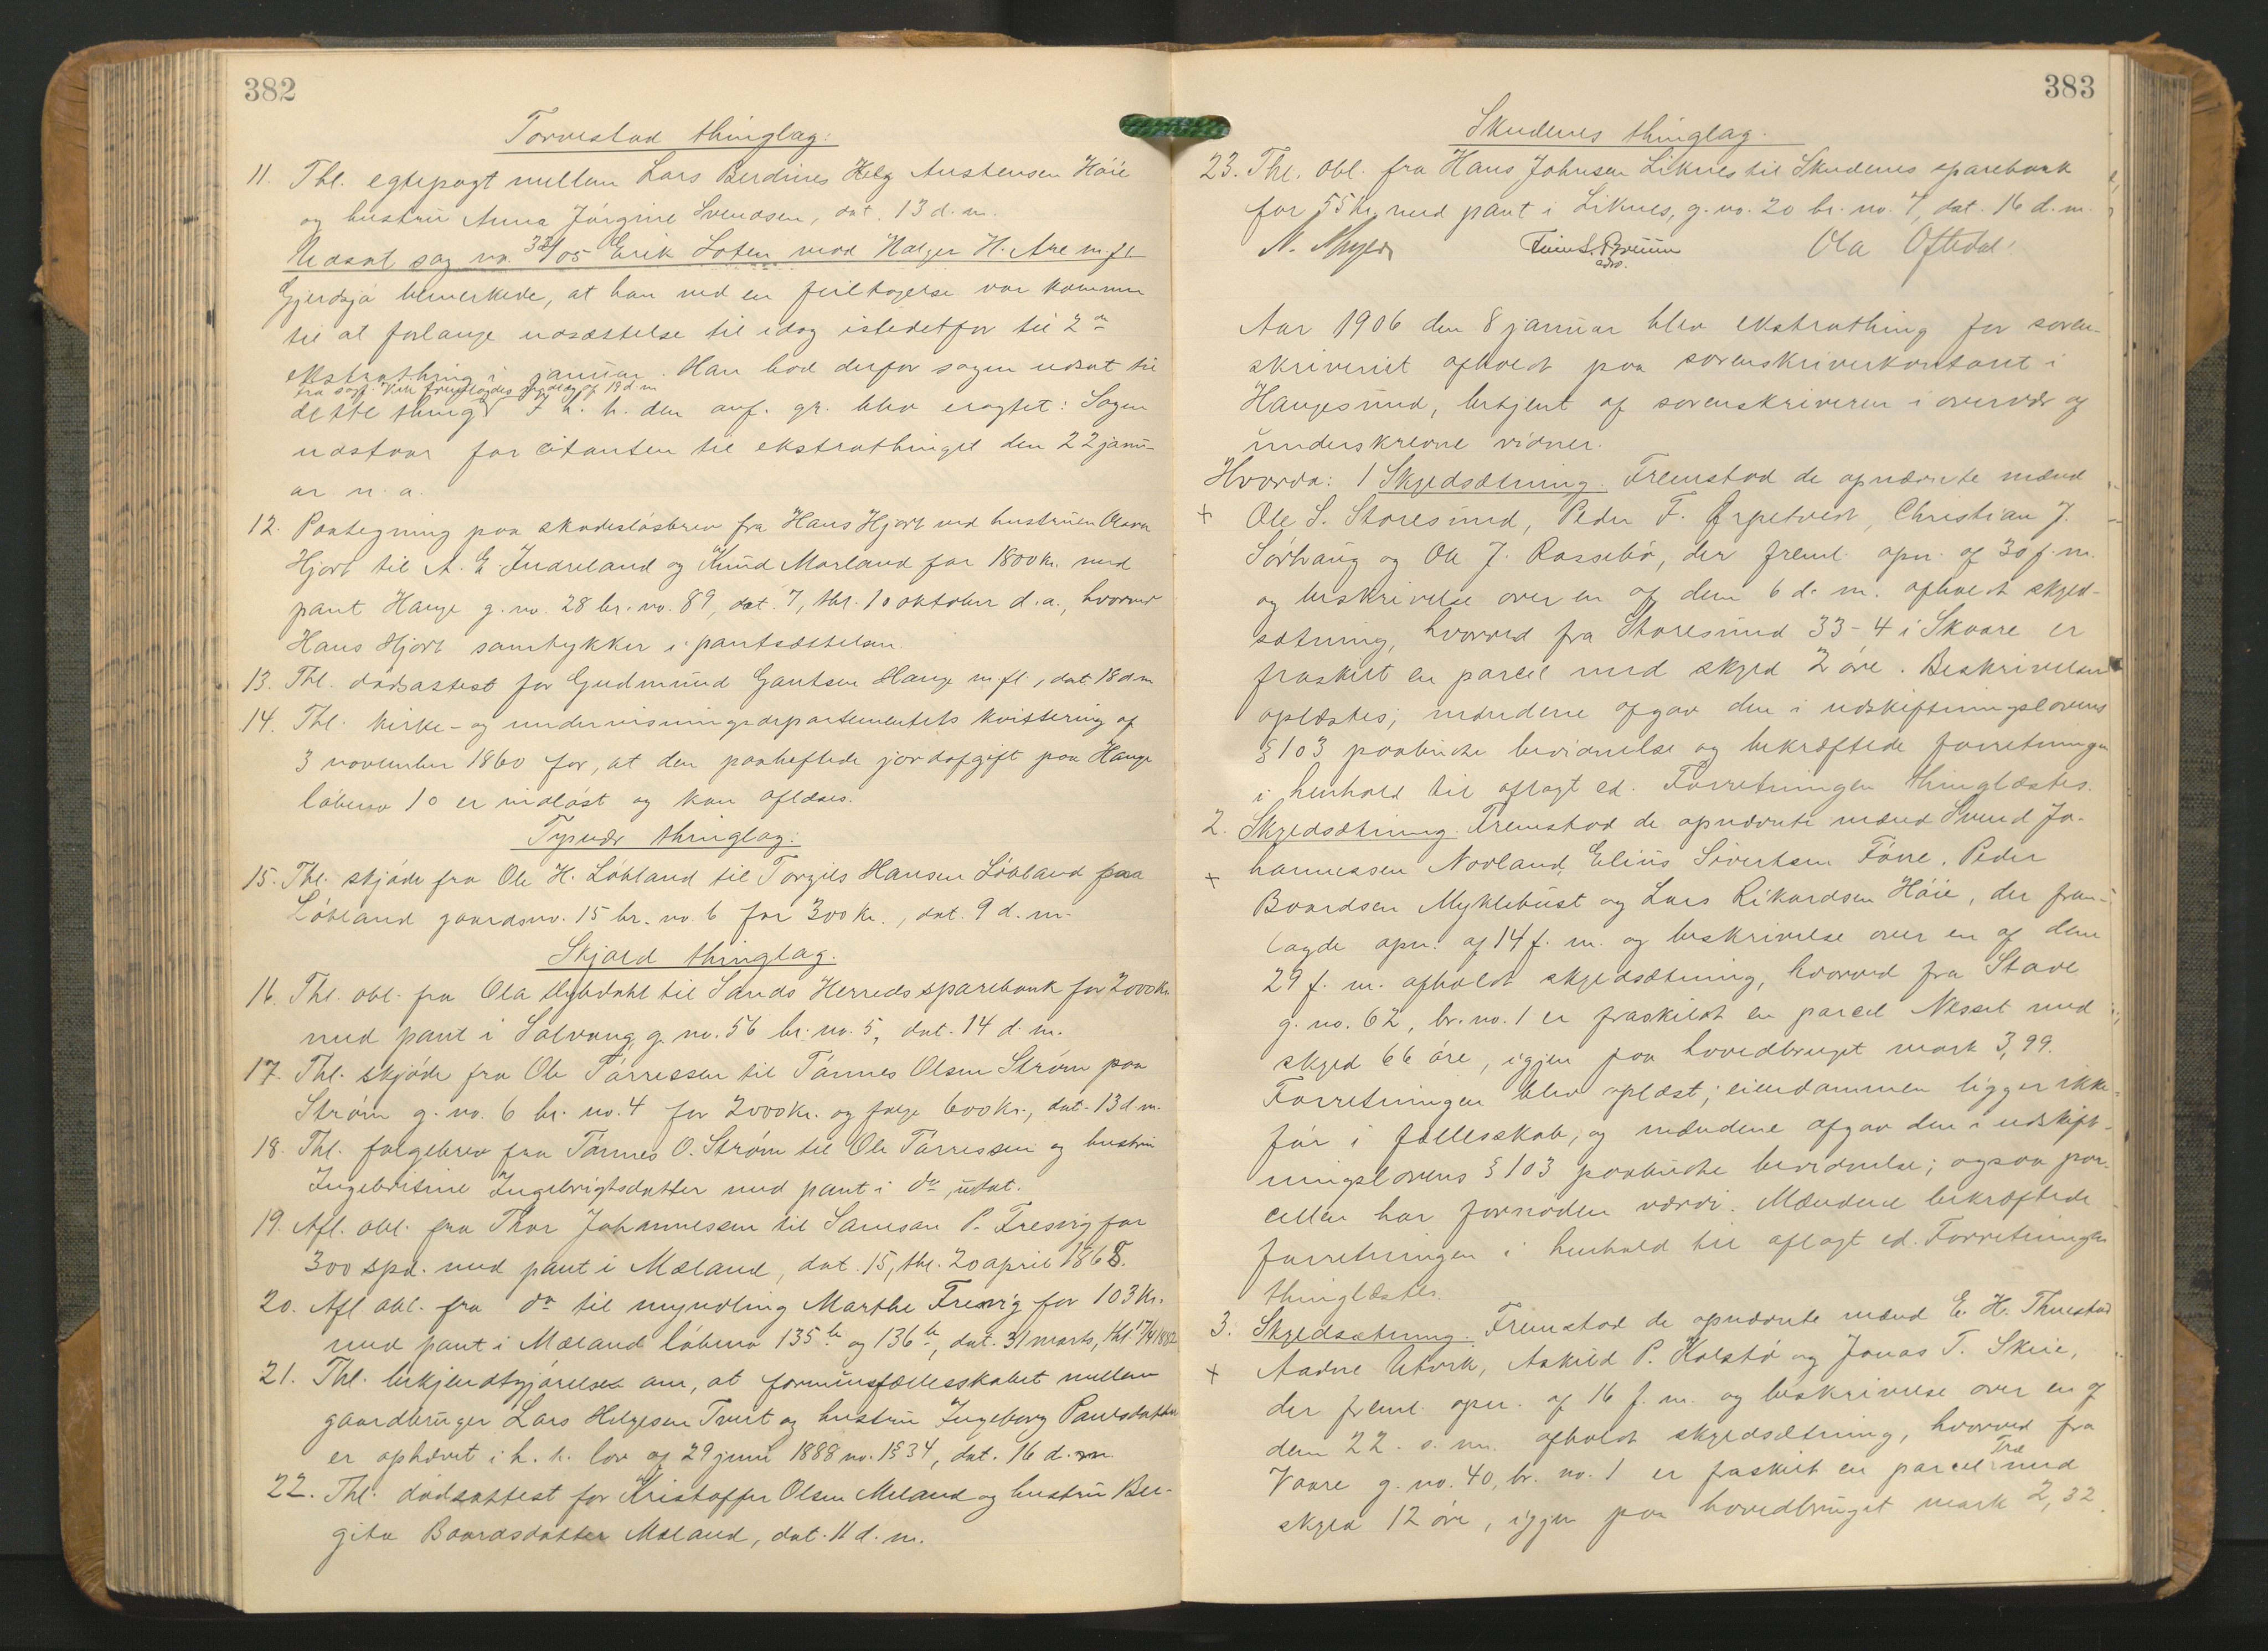 382
Torvestad thinglag:
11. Thl. egtepagt mellem Lars Berdines Helg Austensen Höie
og hustru Anna Jörgine Svendsen, dat. 13 d. m.
Udsat sag no. 33/05 Erik Loten mod Halger H. Are m. fl.
Gjerdsjø bemerkede, at han ved en feiltagelse var kommen
til at forlange udsættelse til idag istedetfor til 2det
ekstrathing i januar. Han bad derfor sagen udsat til
fra sagf. Vik fremlagdes indlæg af 19 d. m.
dette thing. I h. h. den anf. gr. blev eragtet: Sagen
udstaar for citanten til ekstrathinget den 22 janu-
ar n. a.
12. Paategning paa skadeslösbrev fra Hans Hjort ved hustruen Olava
Hjort til A. E. Indreland og Knud Morland for 1800 kr. med
pant Hauge g. no. 28 br. no. 89, dat. 7, thl. 10 oktober d. a., hvorved
Hans Hjort samtykker i pantsættelsen.
13. Thl. dödsattest for Gudmund Gautsen Hauge m. fl., dat. 18 d. m.
14. Thl. kirke- og undervisningsdepartementets kvittering af
3 november 1860 for, at den paaheftede jordafgift paa Hauge
löbeno 10 er indlöst og kan aflæses.
Tysvær thinglag:
15. Thl. skjöde fra Ole H. Löbland til Torgils Hansen Löbland paa
Löbland gaardsno. 15 br. no. 6 for 300 kr., dat. 9 d. m.
Skjold thinglag.
16. Thl. obl. fra Ola Dybdahl til Sands Herreds sparebank for 2000 kr.
med pant i Solvang, g. no. 56 br. no. 5, dat. 14 d. m.
17. Thl. skjöde fra Ole Tárressen til Tánnes Olsen Ström paa
Ström g. no. 6 br. no. 4 for 2000 kr. og folge 600 kr., dat. 13 d. m.
18. Thl. folgebrev fra Tánnes O. Ström til Ole Tárressen og hustru
Ingebritine Ingebrigtsdatter med pant i do, udat.
19. Afl. obl. fra Thor Johannessen til Samson P. Fresvig for
300 spd. med pant i Mæland, dat. 15, thl. 20 april 1868.
20. Afl. obl. fra do til myndling Marthe Fresvig for 103 kr.
med pant i Mæland löbeno 135 b og 136 b, dat. 31 marts, thl. 17/4 1882
21. Thl. bekjendtgjörelse om, at formuesfællesskabet mellem
gaardbruger Lars Helgesen Tveit og hustru Ingeborg Paulsdatter
er ophævet i h. t. lov af 29 juni 1888 no. 1 § 34, dat. 16 d. m.
22. Thl. dödsattest for Kristoffer Olsen Meland og hustru Ber-
gita Baardsdatter Mæland, dat. 11 d. m.
383
Skudenes thinglag.
23. Thl. obl. fra Hans Johnsen Liknes til Skudenes sparebank
for 55 kr. med pant i Liknes, g. no. 20 br. no. 7, dat. 16 d. m.
Ola Oftedal.
Aar 1906 den 8 januar blev ekstrathing for soren-
skriveriet afholdt paa sorenskriverkontoret i
Haugesund, betjent af sorenskriveren i overvær af
underskrevne vidner.
Hvorda: 1 Skyldsætning. Fremstod de opnævnte mænd
+ Ole S. Storesund, Peder F. Ørpetvedt, Christian J.
Sörhaug og Ole J. Rossebö, der freml. opn. af 30 f. m.
og beskrivelse over en af dem 6 d. m. afholdt skyld-
sætning, hvorved fra Storesund 33-4 i Skaare er
fraskilt en parcel med skyld 2 øre. Beskrivelsen
oplæstes; mændene afgav den i udskiftningslovens
§ 103 paabudte bevidnelse og bekræftede forretningen
i henhold til aflagt ed. Forretningen thinglæstes.
2. Skyldsætning. Fremstod de opnævnte mænd Svend Jo-
+ hannessen Nordland, Elius Sivertsen Förre, Peder
Baardsen Myklebust og Lars Rikardsen Höie, der frem-
lagde opn. af 14 f. m. og beskrivelse over en af dem
29 f. m. afholdt skyldsætning, hvorved fra Stave
g. no. 62, br. no. 1 er fraskildt en parcel Nesset med
skyld 66 öre, igjen paa hovedbruget mark 3,99.
Forretningen blev oplæst; eiendommen ligger ikke
för i fællesskab, og mændene afgav den i udskift-
ningslovens § 103 paabudte bevidnelse; ogsaa par-
cellen har fornöden værdi. Mændene bekræftede
forretningen i henhold til aflagt ed. Forretningen
thinglæstes.
3. Skyldsætning. Fremstod de opnævnte mænd E. H. Thuestad
+ Aadne Utvik, Askild P. Kolstö og Jonas T. Skeie,
der freml. opn. af 16 f. m. og beskrivelse over en af
dem 22. s. m. afholdt skyldsætning, hvorved fra
Vaare g. no. 40, br. no. 1 er fraskilt en parcel Træ med
skyld 12 öre, igjen paa hovedbruget mark 2,32.